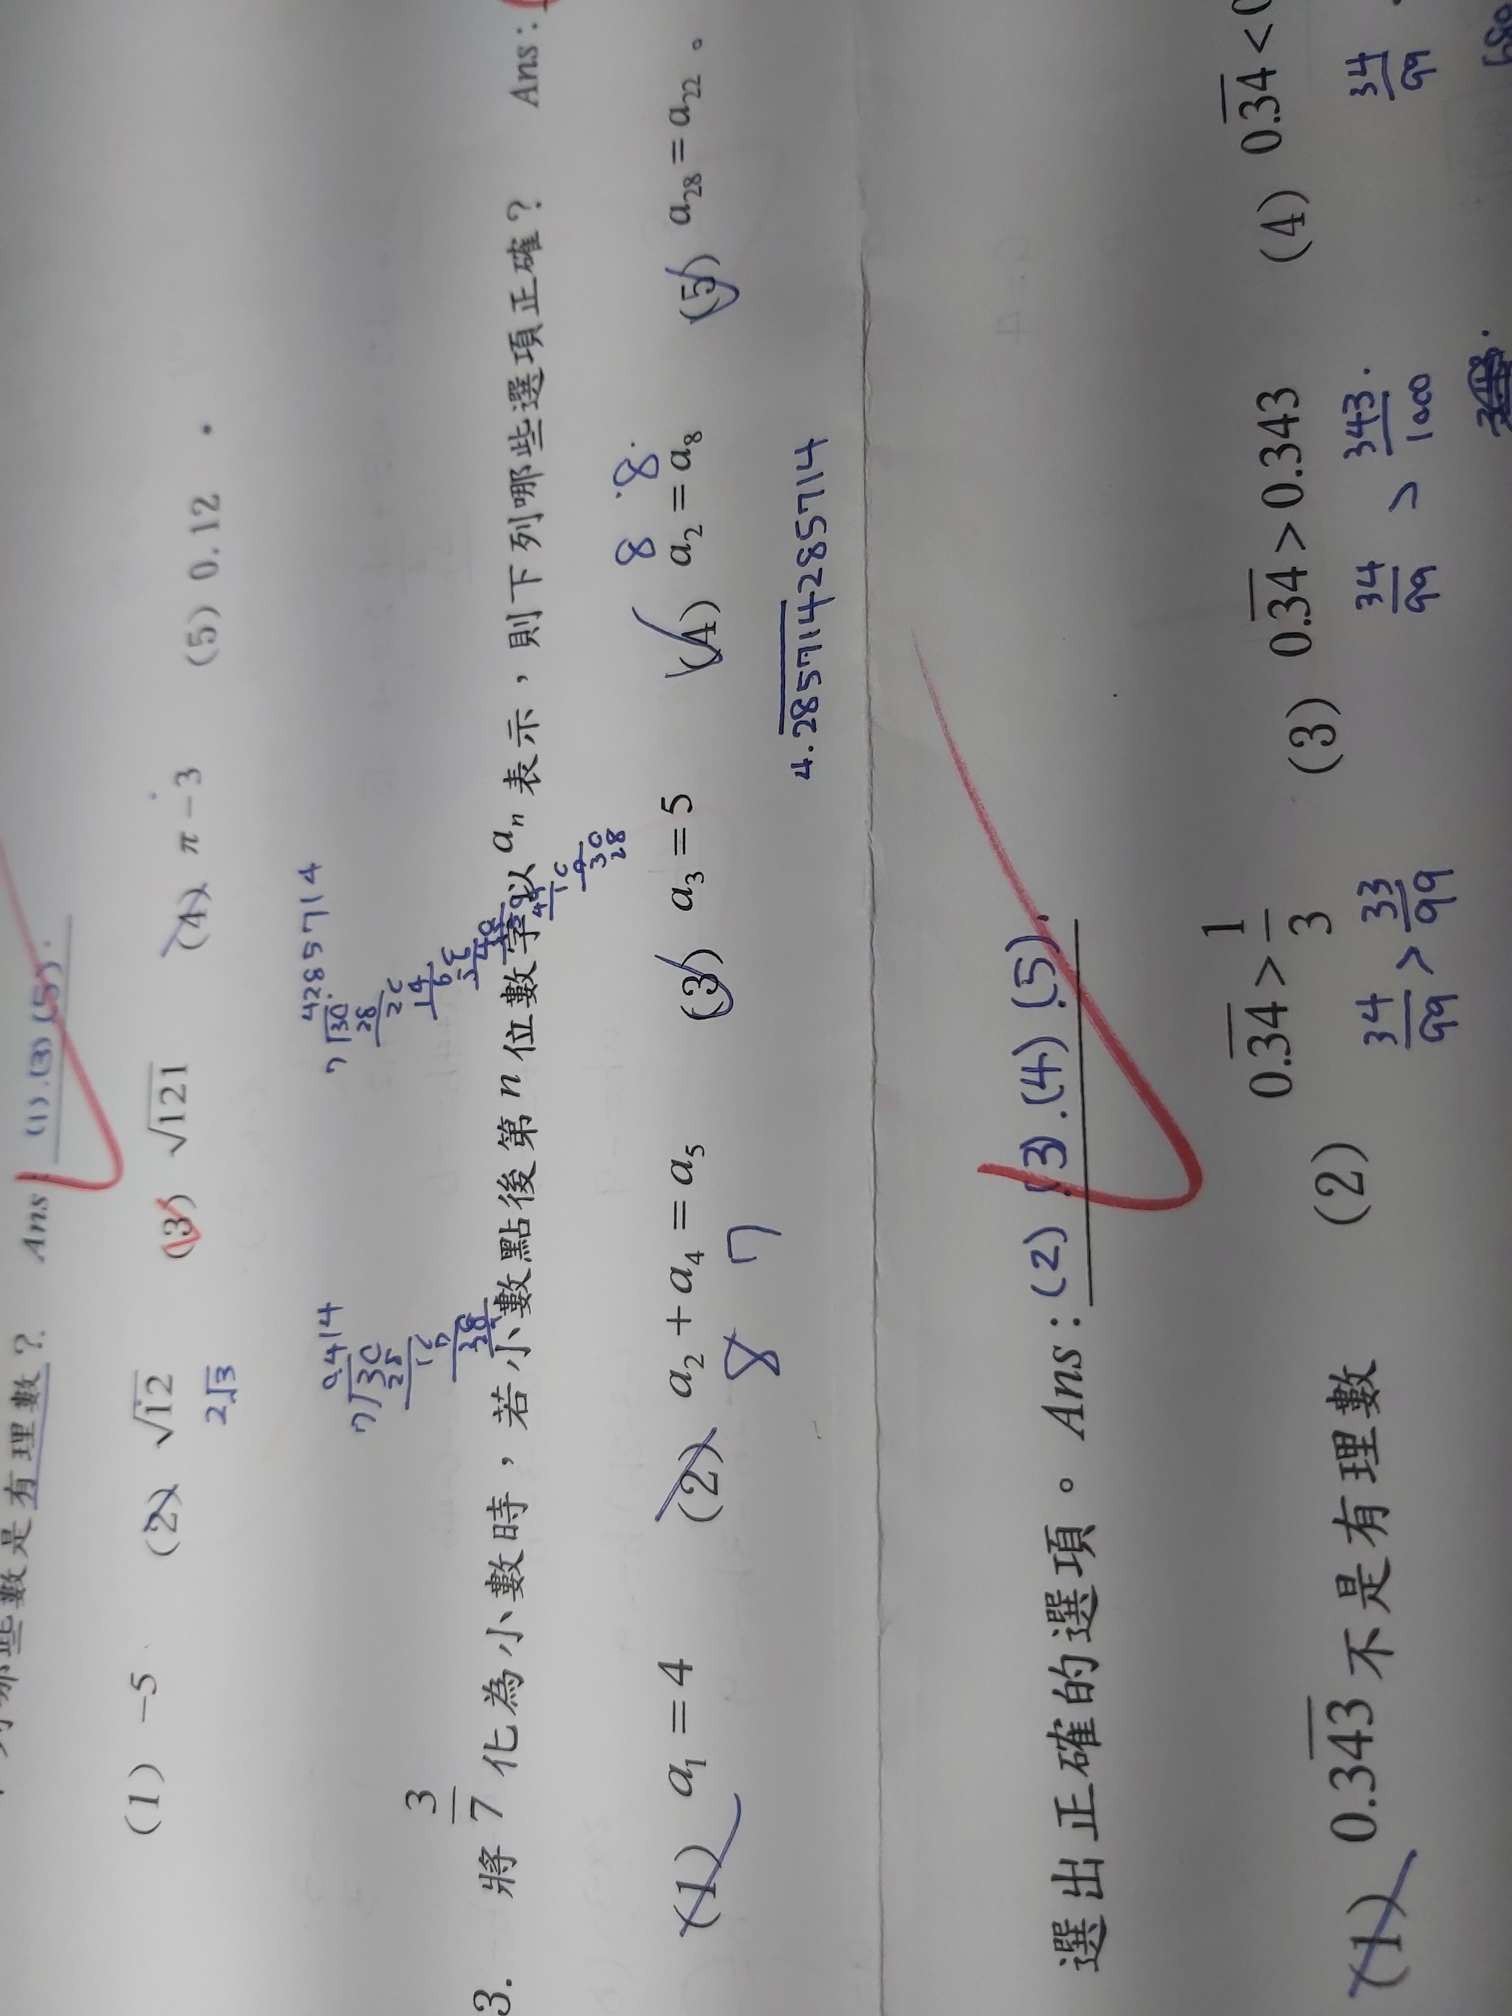 哪些數是有理數？ Ans (1).(3)(5).
(1) －5 (2) √12 (3) √121 (4) π－3 (5) 0.12 。
2√3
0.414 4285714
7√30 7√30.
28 28
20
14
3. 將 3/7 化為小數時，若小數點後第 n 位數字以 aₙ 表示，則下列哪些選項正確？ Ans:
8 8.
(1) a₁＝4 (2) a₂＋a₄＝a₅ (3) a₃＝5 (4) a₂＝a₈ (5) a₂₈＝a₂₂。
8 7 4.285714285714
選出正確的選項。Ans:(2)(3).(4)(5).
(1) 0.343不是有理數 (2) 0.34＞1/3 (3) 0.34＞0.343 (4) 0.34＜0
34/99 > 33/99 34/99 > 343/1000. 34/99